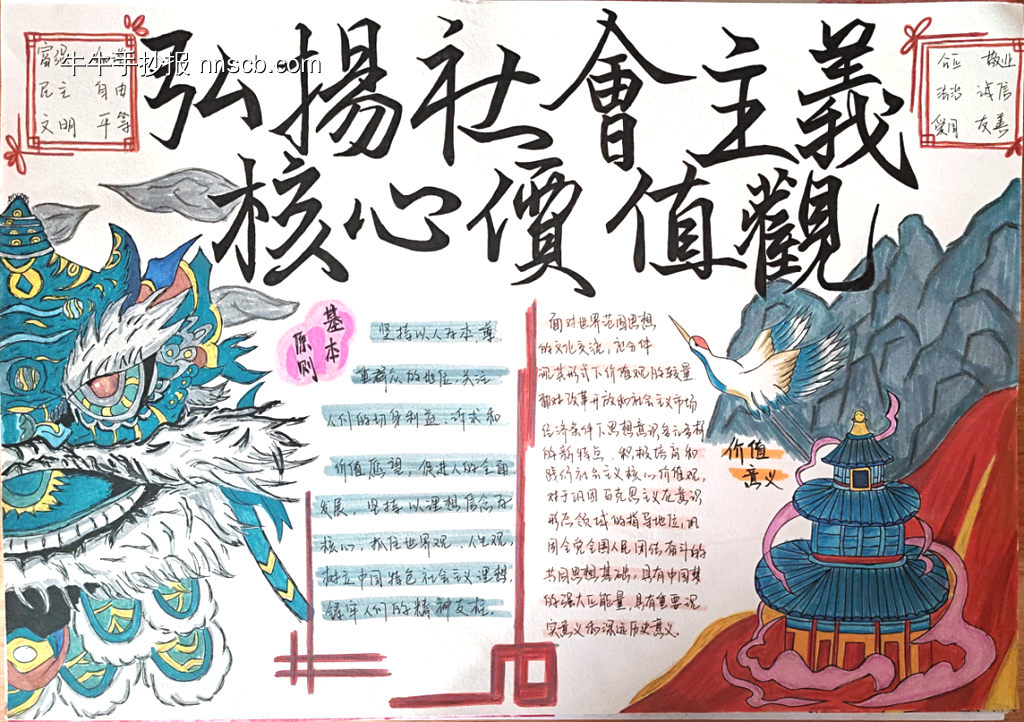 弘揚社會主義
核心價值觀
牛牛手抄报 nnscb.com
富强
民主 自由
文明 平等
敬业
法治 诚信
爱国 友善
基本
原则
坚持以人为本,尊
重群众的地位,关注
人们的切身利益、诉求和
价值愿望,促进人的全面
发展、坚持以理想信念为
核心,抓住世界观、人生观,
树立中国特色社会主义理想,
铸牢人们的精神支柱.
面对世界范围思想
的文化交流,
形式下价值观的较量
面对改革开放和社会主义市场
经济条件下思想意识多元多样
的新特点,积极培育和
践行社会主义核心价值观,
对于巩固马克思主义在意识
形态领域的指导地位,巩
固全党全国人民团结奋斗的
共同思想基础,具有中国梦
的强大正能量,具有重要现
实意义和深远历史意义.
价值
意义